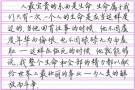 人最宝贵的东西是生命,生命属于我
们只有一次,一个人的生命是应当这样度
过的:当他回首往事的时候,他不因虚
度年华而悔恨,也不因碌碌无为而羞
耻——这样在临死的时候,他就能够
说,我整个生命和全部的精力都献
给世界上最壮丽的事业——为人类的解
放而斗争。